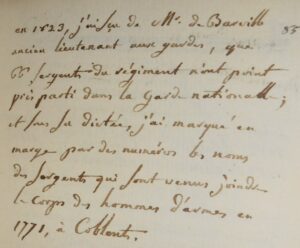 85
en 1823, j'ai sçu de Mr. de Bareville
ancien lieutenant aux gardes, que
66 sergents du régiment n'ont point
pris parti dans la Garde nationale ;
et sous sa dictée, j'ai marqué en
marge par des numéros les noms
des sergents qui sont venus joindre
le Corps des hommes d'armes en
1771, à Coblents.